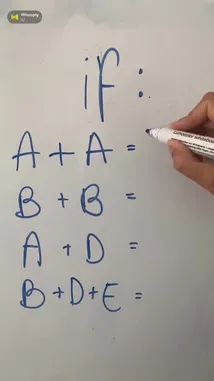 if:
A + A =
B + B =
A + D =
B + D + E =